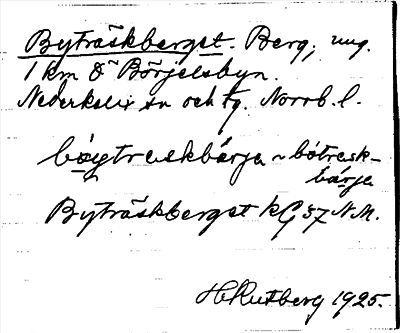 Byträskberget. Berg, ung.
1 km Ö Börjelsbyn.
Nederkalix sn och tg. Norrb. l.
böytreskbärja ~ bötresk-
bärja
Byträskberget kG 37 N.M.
H Rutberg 1925.